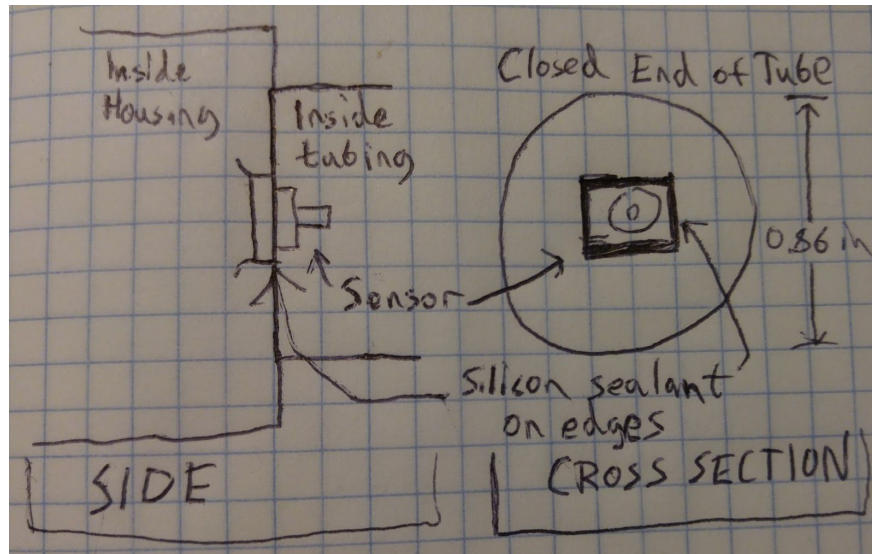 Inside
Housing
Inside
tubing
Closed End of Tube
0.86 in
Sensor
Silicon sealant
on edges
SIDE
CROSS SECTION